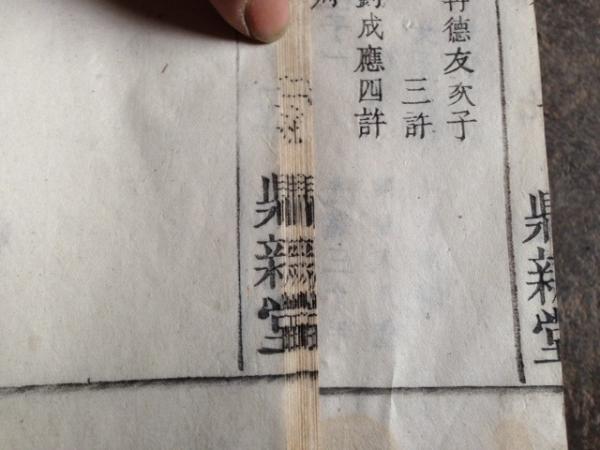 鼎新堂
德友次子
三許
成應四許
鼎新堂